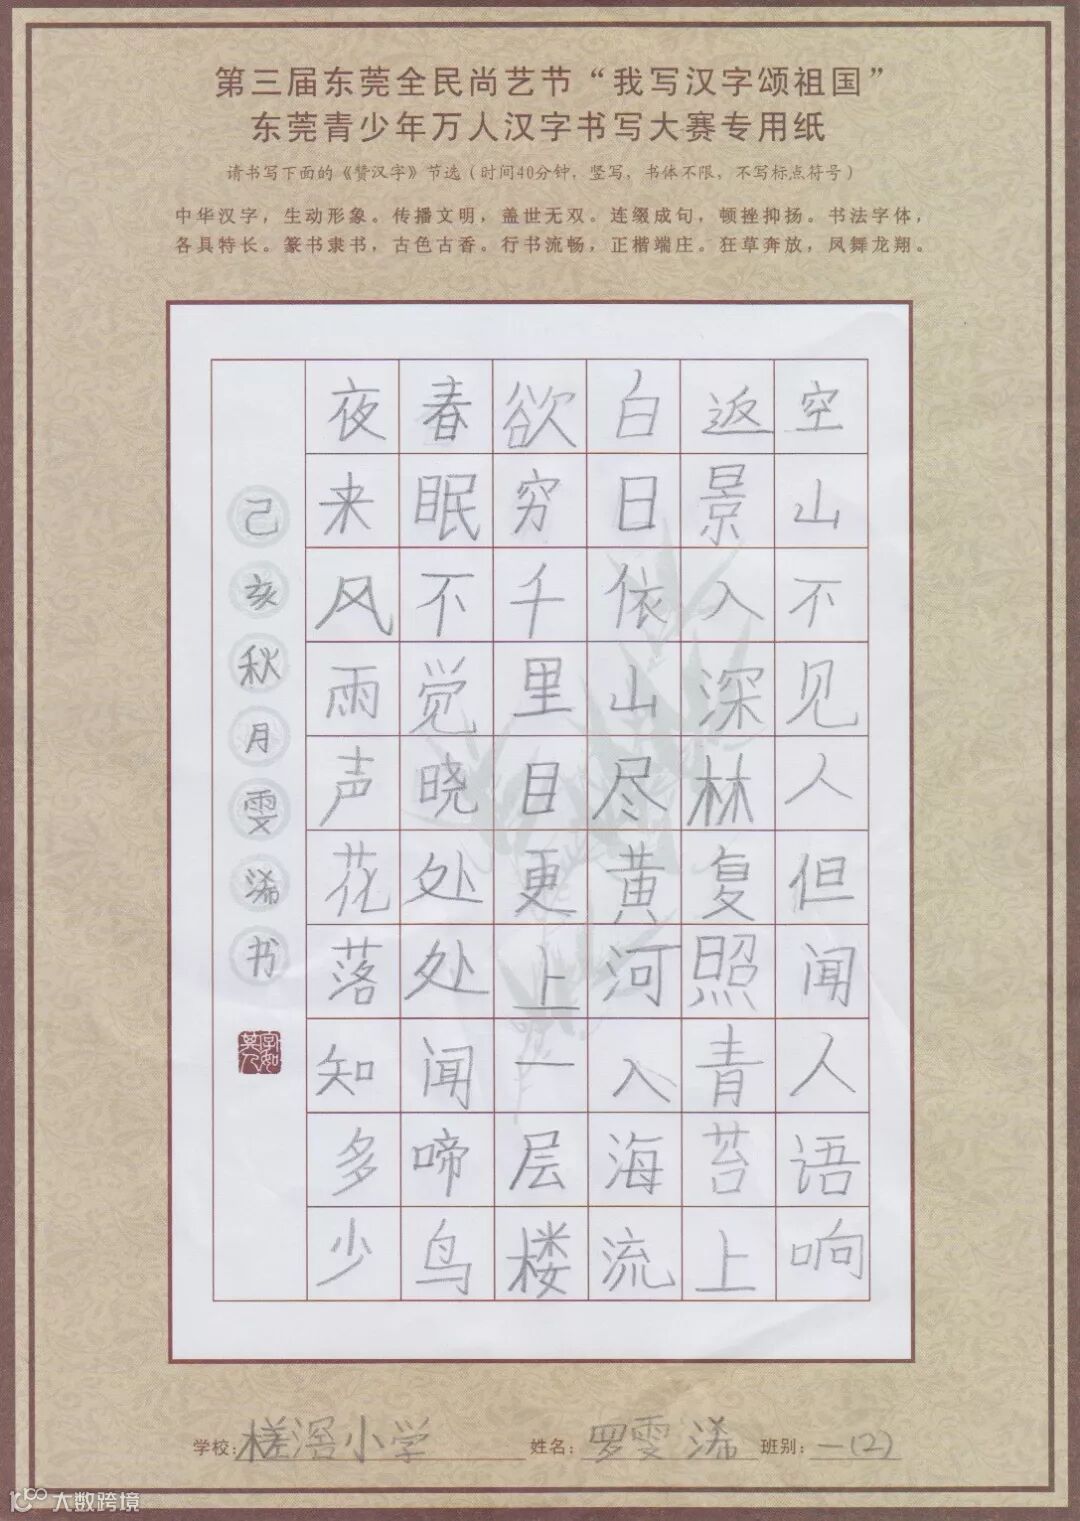 第三届东莞全民尚艺节“我写汉字颂祖国”
东莞青少年万人汉字书写大赛专用纸
请书写下面的《赞汉字》节选（时间40分钟，竖写，书体不限，不写标点符号）
中华汉字，生动形象。传播文明，盖世无双。连缀成句，顿挫抑扬。书法字体，
各具特长。篆书隶书，古色古香。行书流畅，正楷端庄。狂草奔放，凤舞龙翔。
空山不见人但闻人语响
返景入深林复照青苔上
白日依山尽黄河入海流
欲穷千里目更上一层楼
春眠不觉晓处处闻啼鸟
夜来风雨声花落知多少
己亥秋月雯浠书
字如其人
学校：槎滘小学 姓名：罗雯浠 班别：一（2）
大数跨境